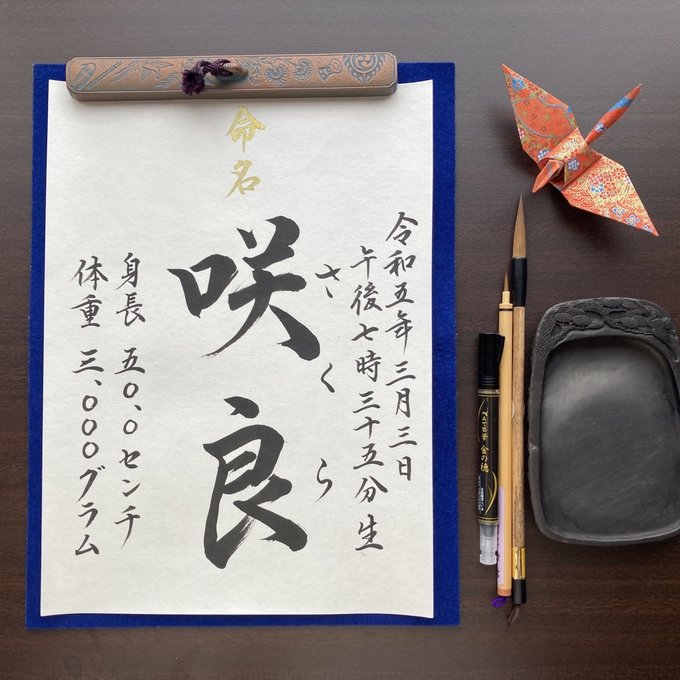 命名
令和五年三月三日
午後七時三十五分生
咲良
さくら
身長 五〇.〇センチ
体重 三、〇〇〇グラム
ぺんてる筆 金の穂